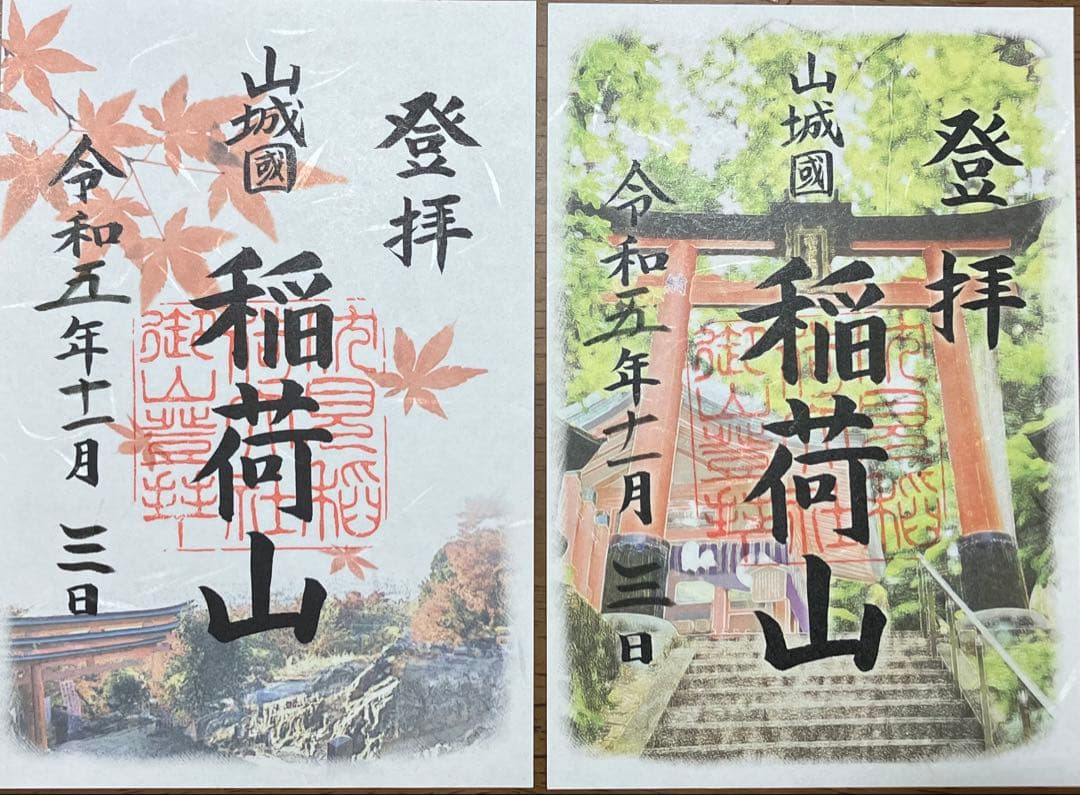 登拝
山城國
稲荷山
令和五年十一月三日
登拝
山城國
稲荷山
令和五年十一月三日